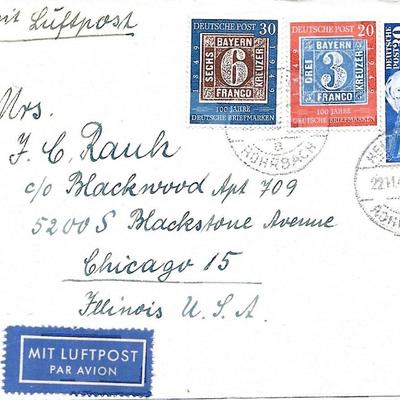 mit Luftpost
DEUTSCHE POST 30
1849
BAYERN
SECHS 6 KREUZER
FRANCO
1949
100 JAHRE
DEUTSCHE BRIEFMARKEN
DEUTSCHE POST 20
1849
BAYERN
DREI 3 KREUZER
FRANCO
1949
100 JAHRE
DEUTSCHE BRIEFMARKEN
DEUTSCHE
POST
a
ROHRBACH
22.11.4
Mrs.
J. C. Rauh
c/o Blackwood Apt 709
5200 S Blackstone Avenue
Chicago 15
Illinois U.S.A
MIT LUFTPOST
PAR AVION